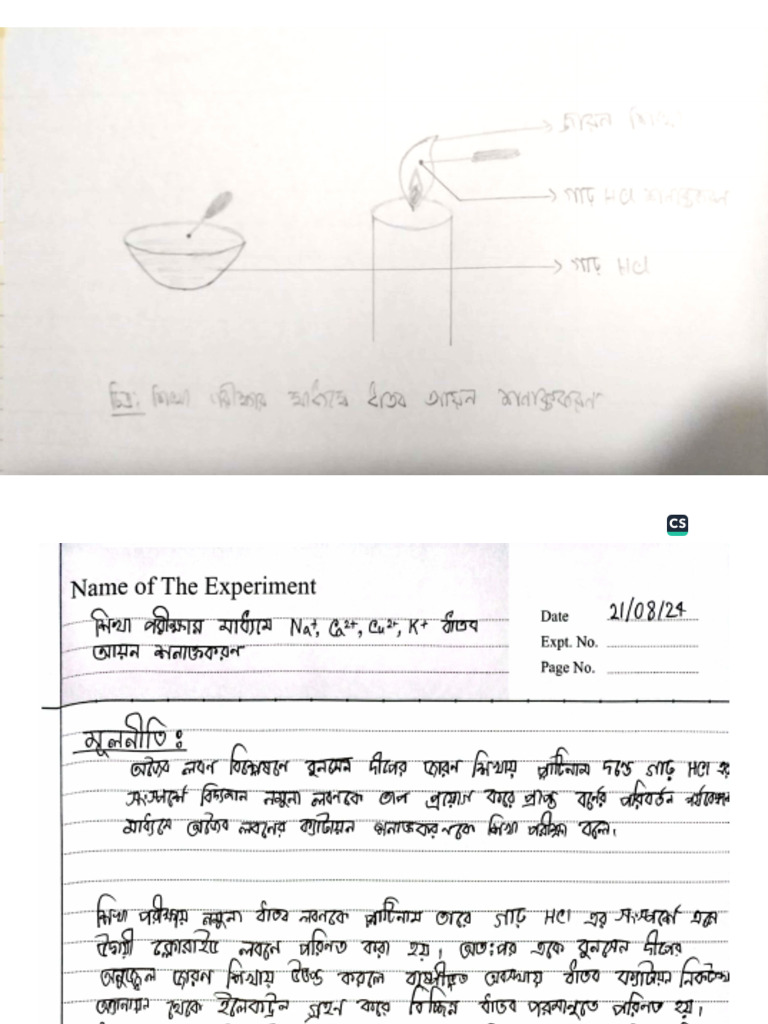 জারন শিখা
গাঢ় HCl শনাক্তকরণ
গাঢ় HCl
চিত্র: শিখা পরীক্ষার মাধ্যমে ধাতব আয়ন শনাক্তকরণ
CS
Name of The Experiment
শিখা পরীক্ষার মাধ্যমে Na⁺, Ca²⁺, Cu²⁺, K⁺ ধাতব
আয়ন শনাক্তকরণ
Date 21/08/24
Expt. No.
Page No.
মূলনীতি:
অজৈব লবণ বিশ্লেষণে বুনসেন দীপের জারণ শিখায় প্লাটিনাম দন্ডে গাঢ় HCl
সংস্পর্শে বিদ্যমান নমুনা লবনকে তাপ প্রয়োগ করে প্রাপ্ত বর্ণের পরিবর্তন
মাধ্যমে অজৈব লবনের ক্যাটায়ন শনাক্তকরণকে শিখা পরীক্ষা বলে।
শিখা পরীক্ষায় নমুনা ধাতব লবনকে প্লাটিনাম তারে গাঢ় HCl এর সংস্পর্শে এনে
উদ্বায়ী ক্লোরাইড লবনে পরিনত করা হয়। অত:পর একে বুনসেন দীপের
অনুজ্জ্বল জারণ শিখায় উত্তপ্ত করলে বাষ্পীভূত অবস্থায় ধাতব ক্যাটায়ন নিকটস্থ
অ্যানায়ন থেকে ইলেকট্রন গ্রহন করে বিচ্ছিন্ন ধাতব পরমাণুতে পরিনত হয়।